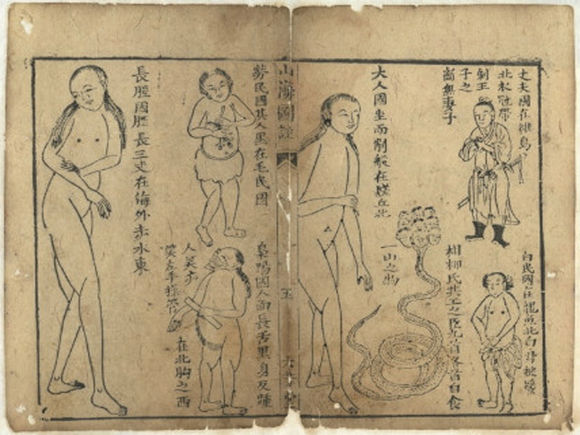 丈夫國在維鳥
北衣冠帶
劍王
子之
無妻子
白民國在龍魚北白身披髮
相柳氏共工之臣九首自食
一山之物
大人國坐而削船在丘北
山海圖註
五
勞民國其人黑在毛民國
梟陽國人面長舌黑身反踵
人笑亦
笑左手操管
在北朐之西
長脛國脛長三丈在海外赤水東